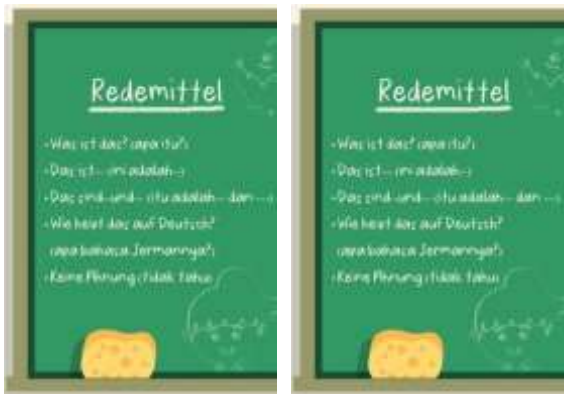 Redemittel
-Was ist das? (apa itu?)
-Das ist... (ini adalah...)
-Das sind...und... (itu adalah... dan ...)
-Wie heist das auf Deutsch?
(apa bahasa Jermannya?)
-Keine Ahnung (tidak tahu)
Redemittel
-Was ist das? (apa itu?)
-Das ist... (ini adalah...)
-Das sind...und... (itu adalah... dan ...)
-Wie heist das auf Deutsch?
(apa bahasa Jermannya?)
-Keine Ahnung (tidak tahu)